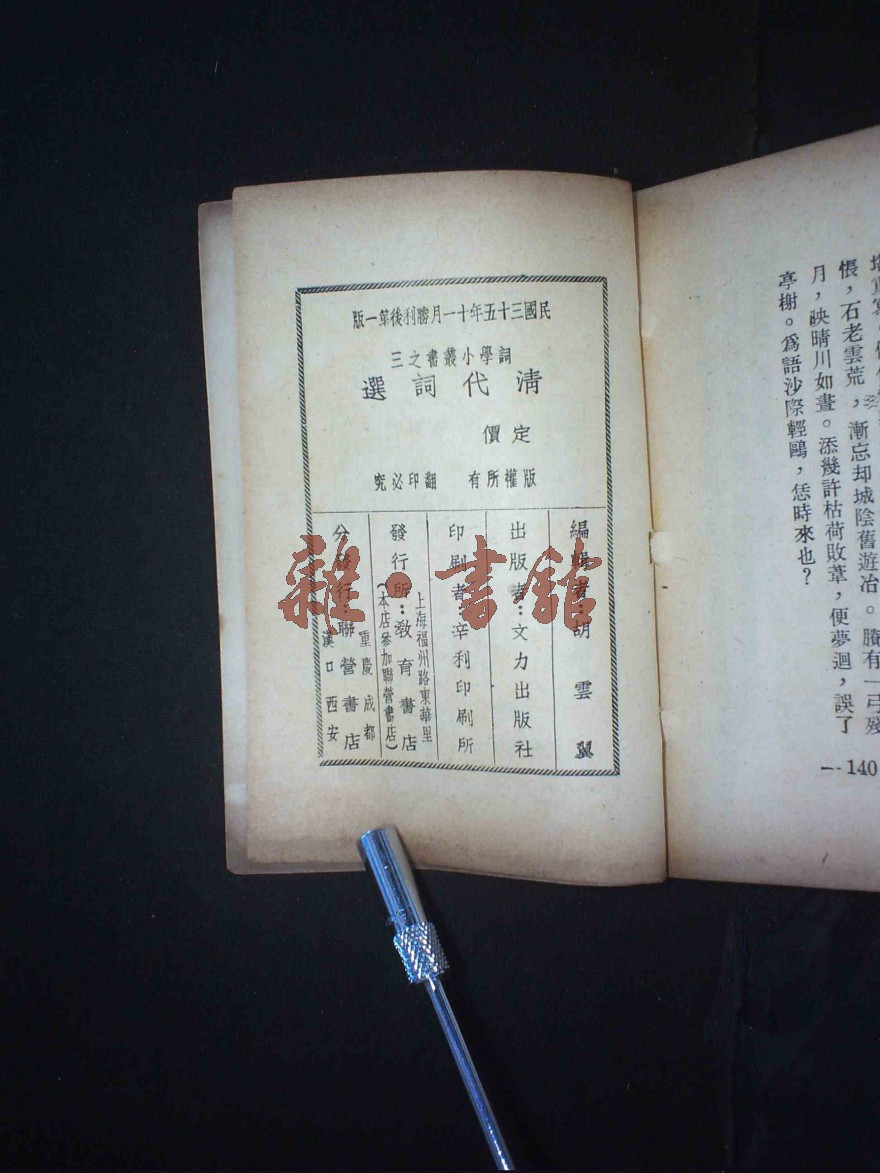 塔重寫。
悵，石老雲荒，漸忘却城陰舊遊冶。賸有一弓殘
月，映晴川如晝。添幾許枯荷敗葦，便夢迴，誤了
亭榭。爲語沙際輕鷗，恁時來也？
140
民國三十五年十一月勝利後第一版
詞學小叢書之三
清代詞選
定價
版權所有 翻印必究
編輯者：胡雲翼
出版者：文力出版社
印刷者：辛利印刷所
上海福州路東華里
發行所：教育書店
（本店參加聯營書店）
重慶成都
分發行：聯營書店
漢口西安
雜·書館